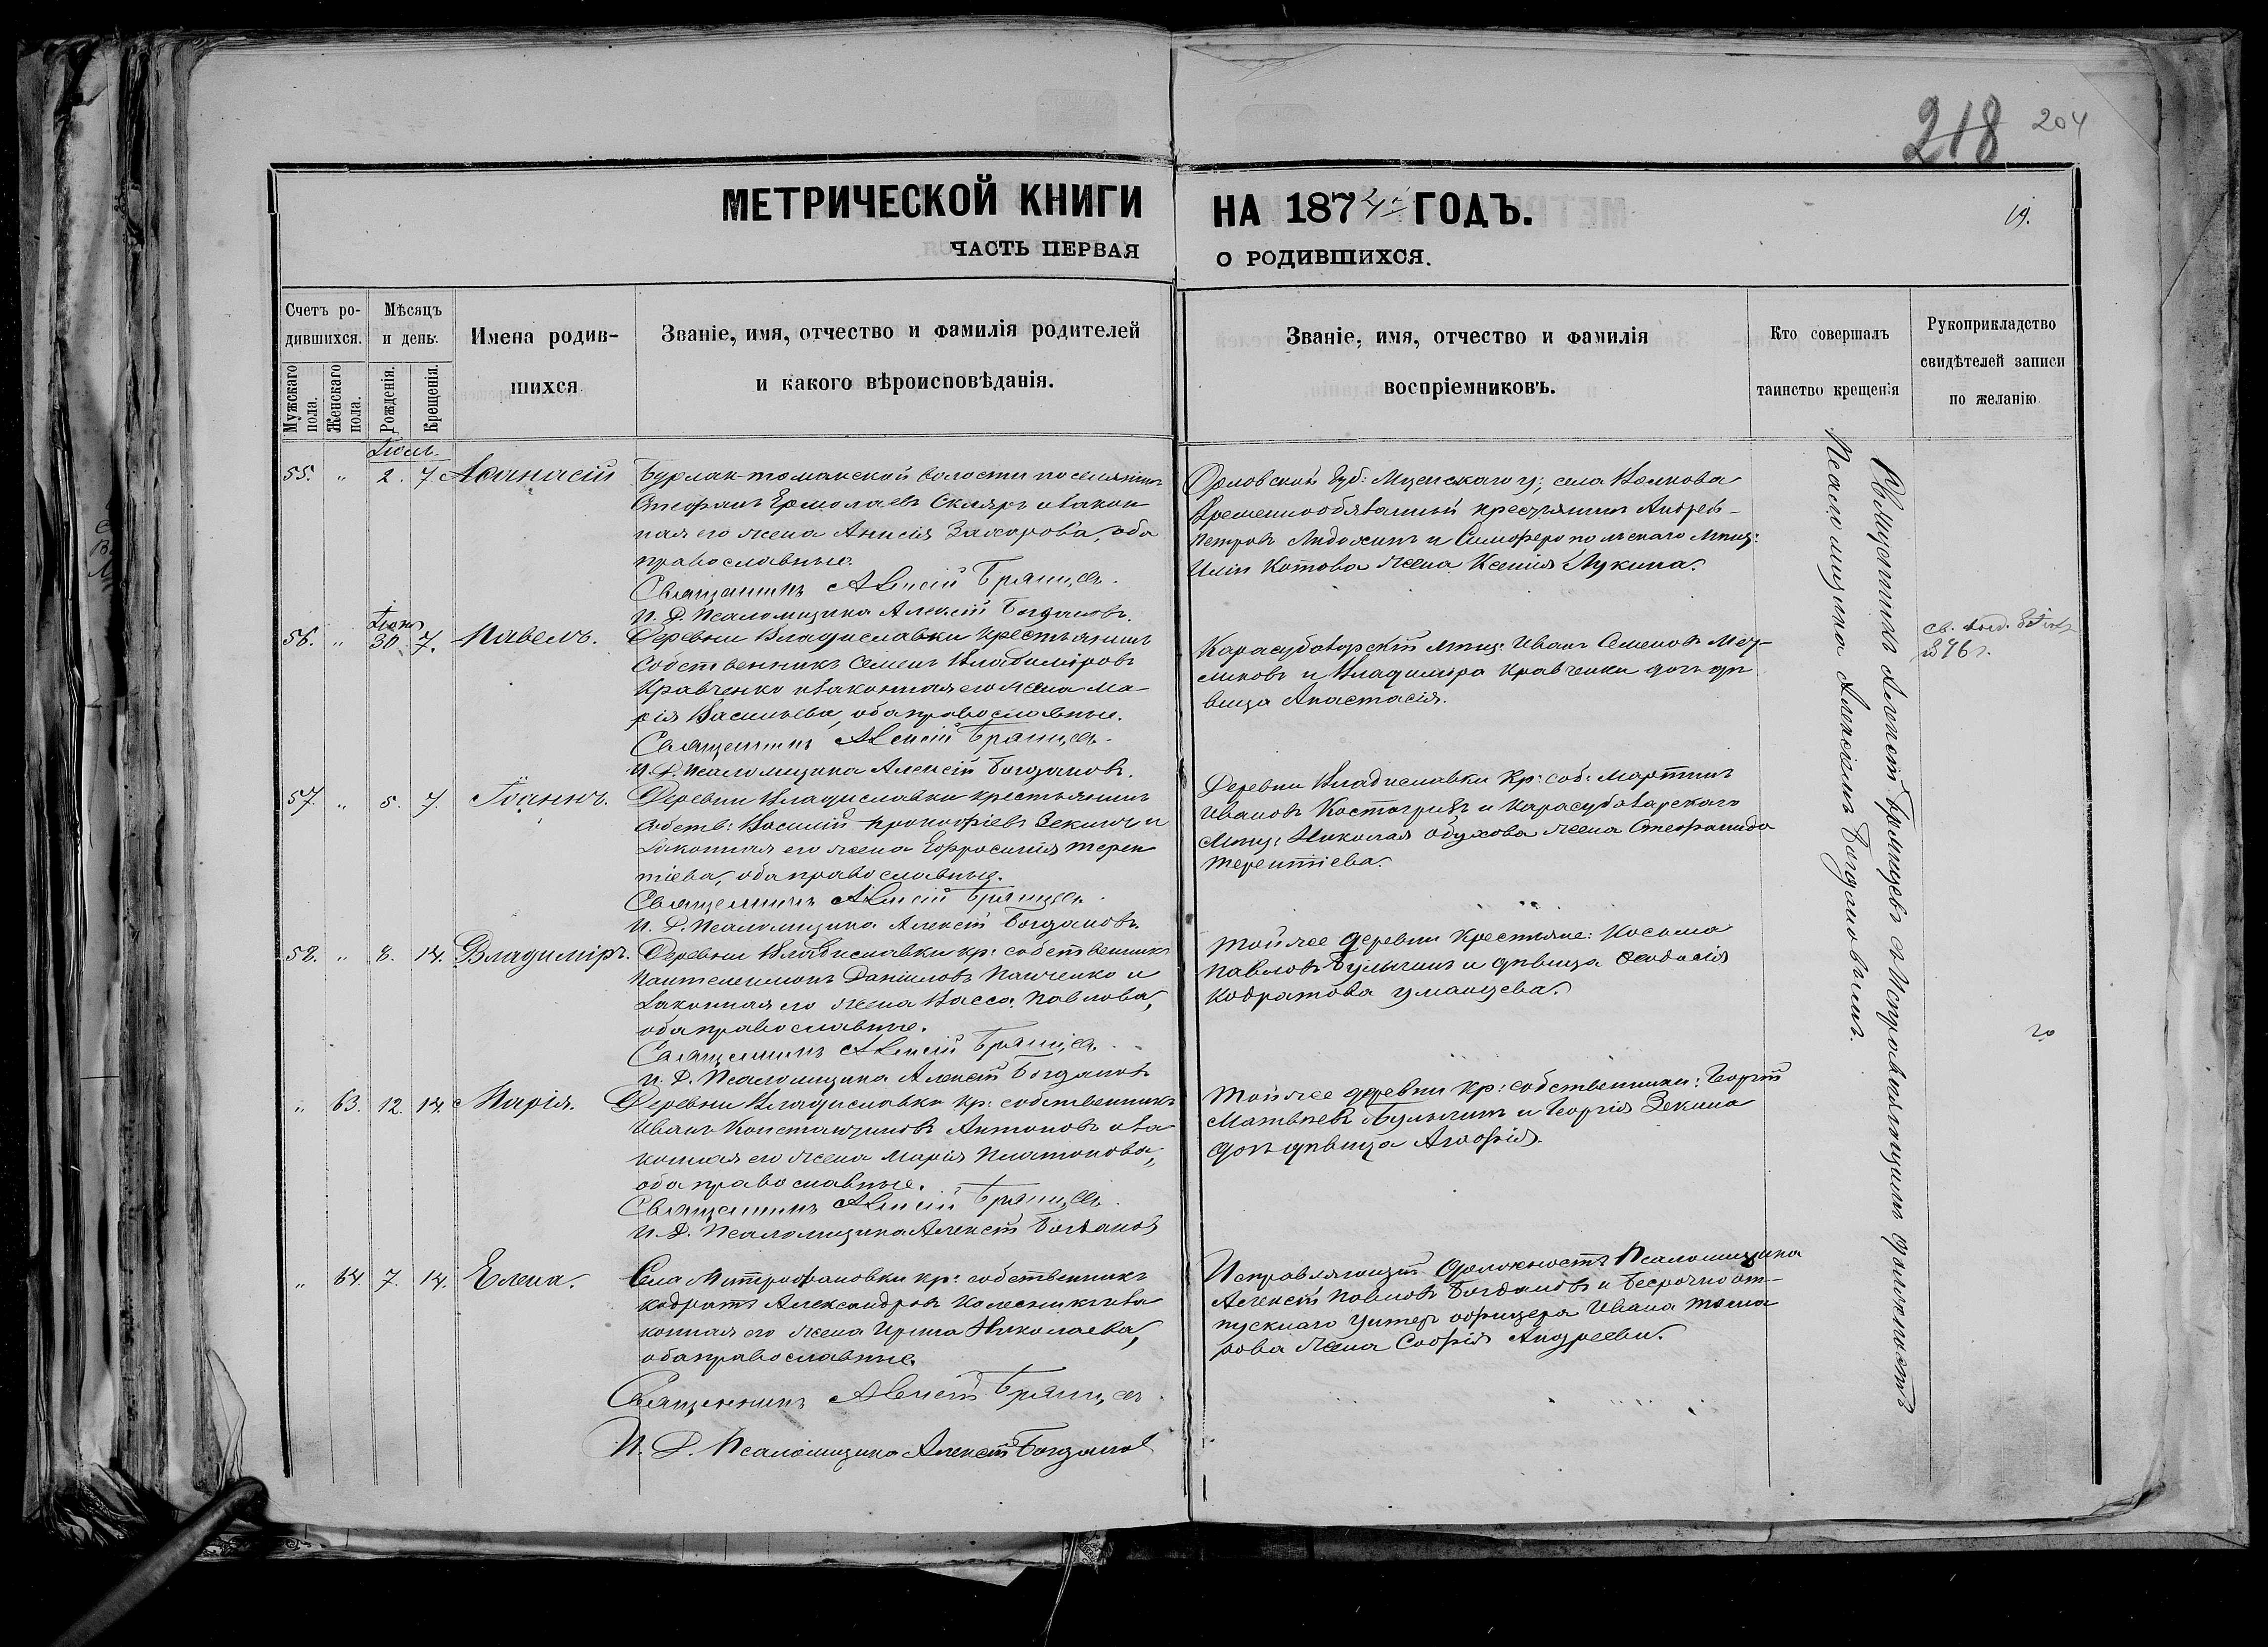 218 204
МЕТРИЧЕСКОЙ КНИГИ НА 1874 ГОДЪ.
19.
ЧАСТЬ ПЕРВАЯ О РОДИВШИХСЯ.
Счетъ ро-
дившихся.
Мужскаго пола.
Женскаго пола.
Мѣсяцъ
и день.
Рожденія.
Крещенія.
Имена родив-
шихся
Званіе, имя, отчество и фамилія родителей
и какого вѣроисповѣданія.
Званіе, имя, отчество и фамилія
воспріемниковъ.
Кто совершалъ
таинство крещенія
Рукоприкладство
свидѣтелей записи
по желанію
55. " 2. 7 Аѳанасій
Бурлак-томакской волости поселянинъ
Стефанъ Ермолаевъ Скляръ и закон-
ная его жена Анисія Захарова, оба
православные.
Священникъ Алексій Брянцевъ.
И. Д. Псаломщика Алексій Богдановъ.
Орловской Губ: Мценскаго у; села Волкова
Временнообязанный крестьянинъ Андрей
Петровъ и Симферопольскаго мѣщ:
Котова жена Ксенія Лукина.
56. " Іюня 30. 7. Павелъ.
Деревни Владиславки крестьянинъ
собственникъ Семенъ Владиміровъ
Кравченко и законная его жена Ма-
рія Васильева, оба православные.
Священникъ Алексій Брянцевъ.
И. Д. Псаломщика Алексій Богдановъ.
Карасубазарскій мѣщ: Иванъ Семеновъ
и Владиміра Кравченки дочь дѣ-
вица Анастасія.
57. " 5. 7. Іоаннъ.
Деревни Владиславки крестьянинъ
собств: Василій Прокофіевъ Зекинъ и
законная его жена Ефросинія Терен-
тіева, оба православные.
Священникъ Алексій Брянцевъ.
И. Д. Псаломщика Алексій Богдановъ.
Деревни Владиславки Кр: соб: Мартинъ
Ивановъ Костогризъ и Карасубазарскаго
мѣщ: Николая Обухова жена Стефанида
Терентіева.
58. " 8. 14. Владиміръ.
Деревни Владиславки кр: собственникъ
Пантелеимонъ Даніиловъ Панченко и
законная его жена Васса Павлова,
оба православные.
Священникъ Алексій Брянцевъ.
И. Д. Псаломщика Алексій Богдановъ
Той же деревни крестьяне: Косьма
Павловъ Булыгинъ и дѣвица Ѳеодосія
Кодратова Уманцева.
20
" 63. 12. 14. Марія.
Деревни Владиславки кр: собственникъ
Иванъ Константиновъ Антоновъ и за-
конная его жена Марія Платонова,
оба православные.
Священникъ Алексій Брянцевъ.
И. Д. Псаломщика Алексій Богдановъ
Той же деревни кр: собственники: Георгій
Матвѣевъ Булыгинъ и Георгія Зекина
дочь дѣвица Агафія.
" 64. 7. 14. Елена.
Села Митрофановки кр: собственникъ
Кодратъ Александровъ Колесникъ и за-
конная его жена Ирина Николаева,
оба православные.
Священникъ Алексій Брянцевъ.
И. Д. Псаломщика Алексій Богдановъ
Исправляющій Должность Псаломщика
Алексій Павловъ Богдановъ и безсрочно от-
пускнаго унтер офицера Ивана
жена Софія Андреева.
Священникъ Алексій Брянцевъ съ Исправляющимъ должность
Псаломщика Алексіемъ Богдановымъ.